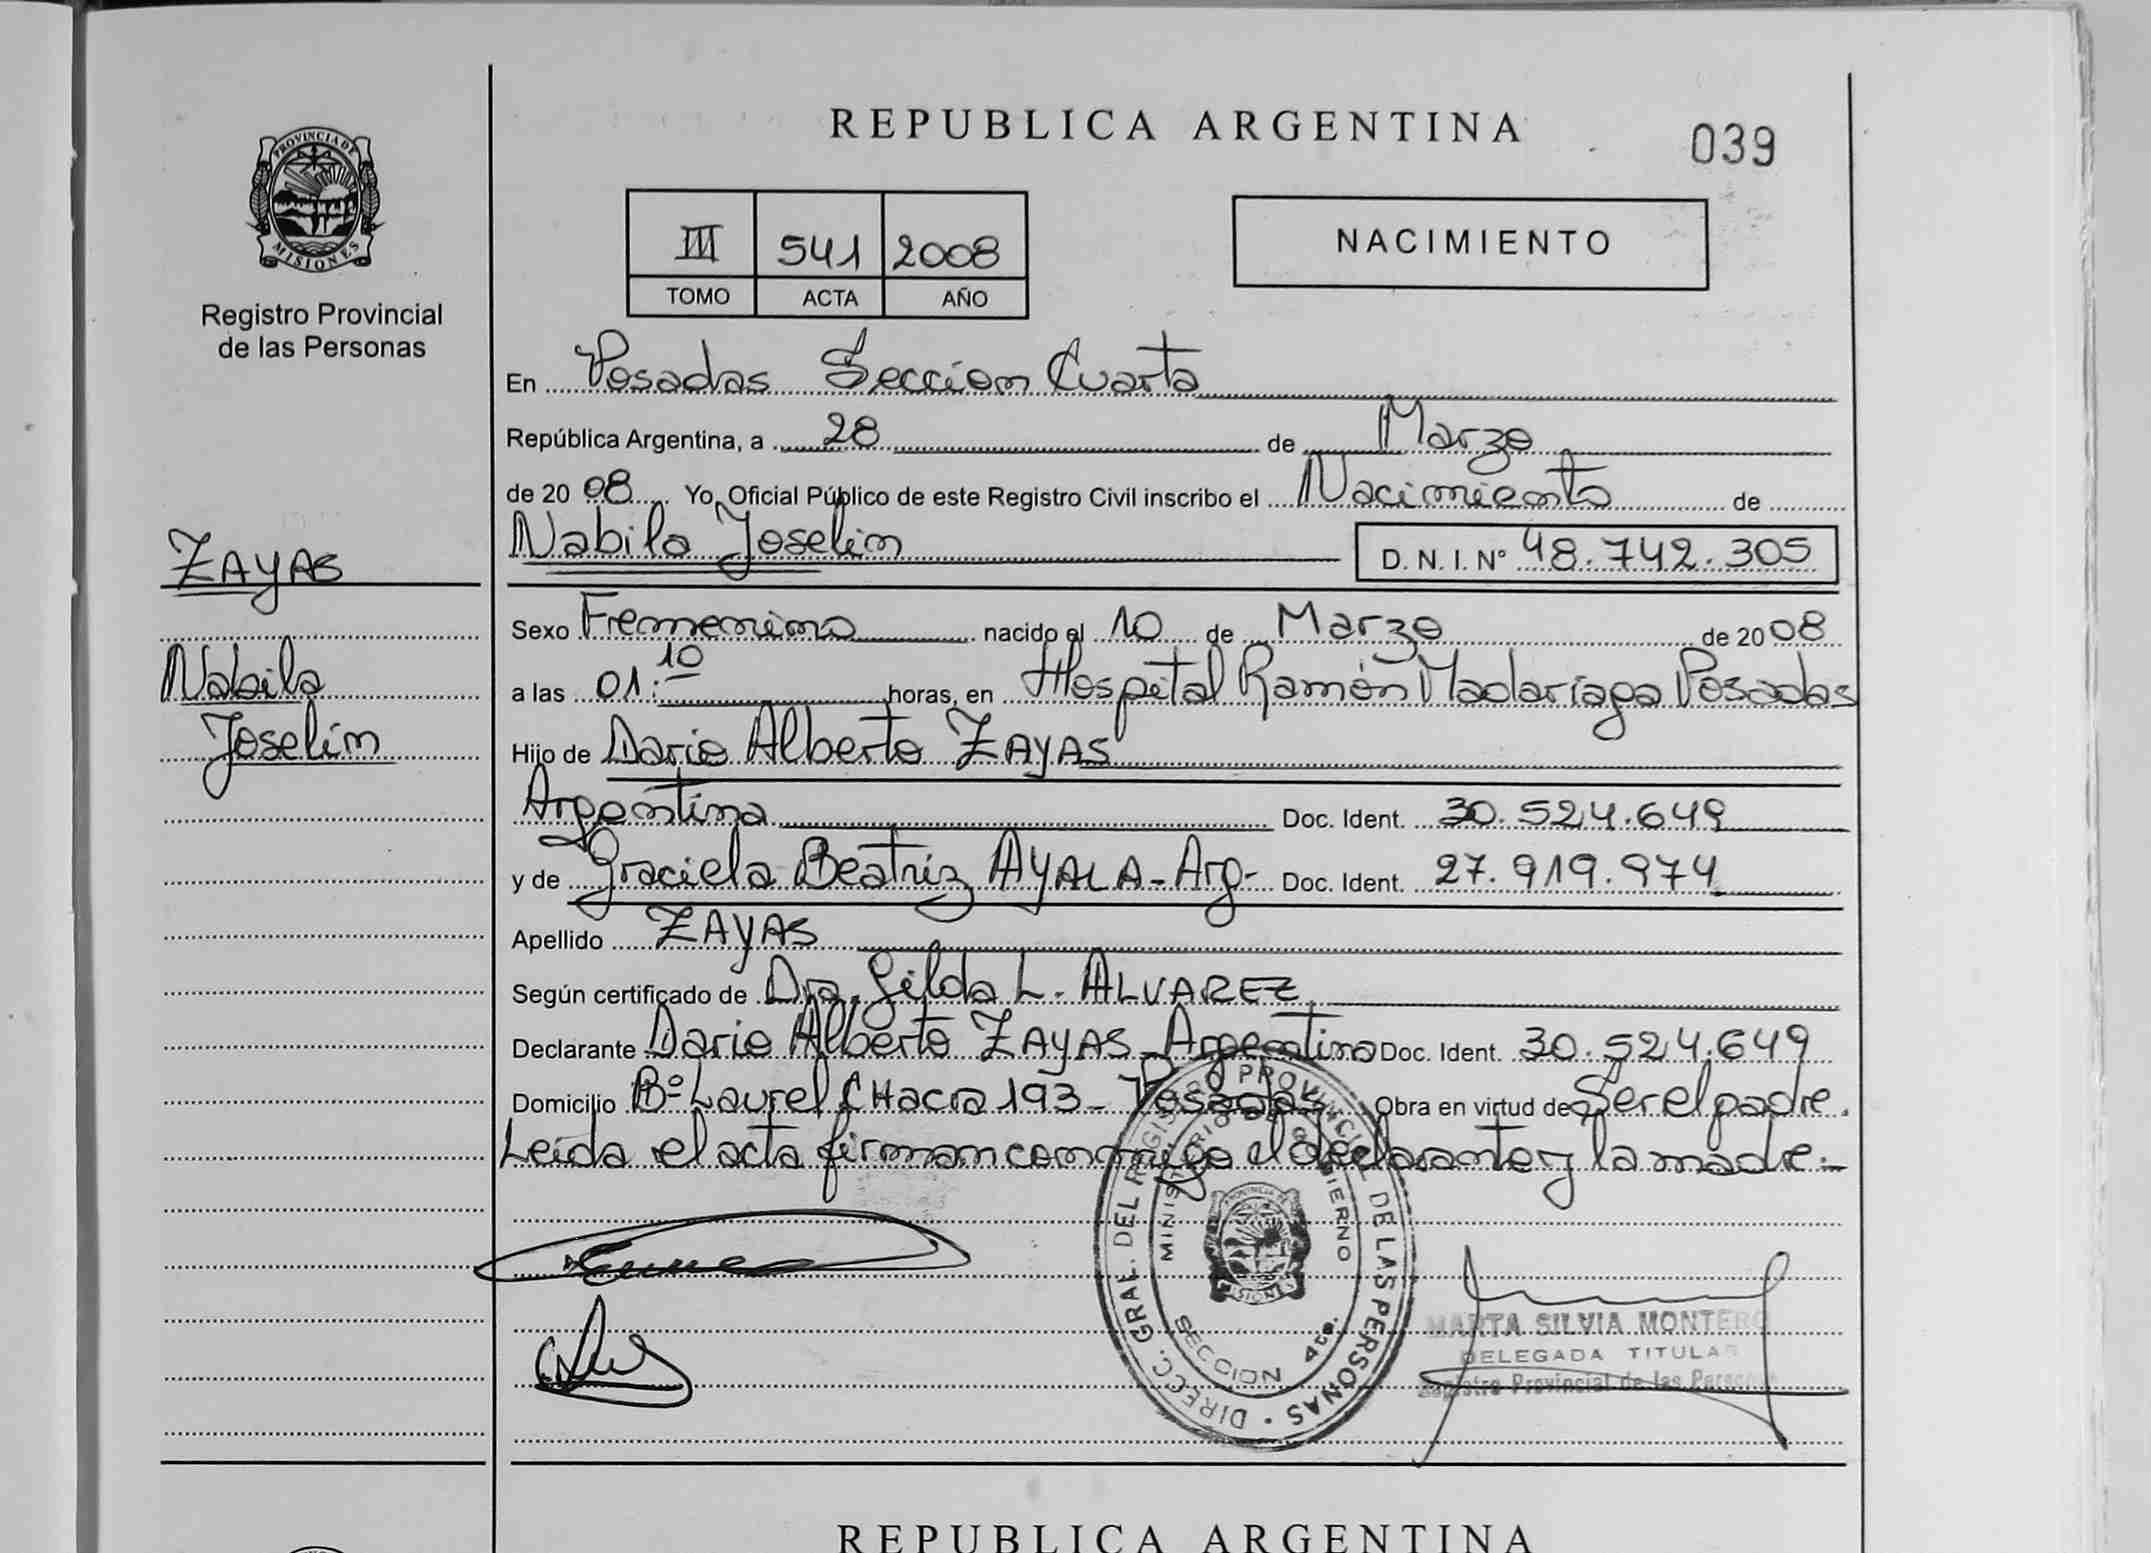 REPUBLICA ARGENTINA
039
PROVINCIA DE MISIONES
Registro Provincial
de las Personas
III 541 2008
TOMO ACTA AÑO
NACIMIENTO
En Posadas Seccion Cuarta
República Argentina, a 28 de Marzo
de 20 08 Yo, Oficial Público de este Registro Civil inscribo el Nacimiento de
Nabila Joselin D. N. I. N° 48.742.305
ZAYAS
Nabila
Joselin
Sexo Femenino nacido el 10 de Marzo de 20 08
a las 01:10 horas, en Hospital Ramón Madariaga Posadas
Hijo de Dario Alberto ZAYAS
Argentina Doc. Ident. 30.524.649
y de Graciela Beatriz AYALA - Arg- Doc. Ident. 27.919.974
Apellido ZAYAS
Según certificado de Dra. Gilda L. ALVAREZ
Declarante Dario Alberto ZAYAS Argentino Doc. Ident. 30.524.649
Domicilio B° Laurel CHacra 193 - Posadas Obra en virtud de Ser el padre.
Leída el acta firman conmigo el declarante y la madre.-
DIRECC. GRAL. DEL REGISTRO PROVINCIAL DE LAS PERSONAS
MINISTERIO DE GOBIERNO
MISIONES
SECCION 4ta.
MARTA SILVIA MONTERO
DELEGADA TITULAR
Registro Provincial de las Personas
REPUBLICA ARGENTINA